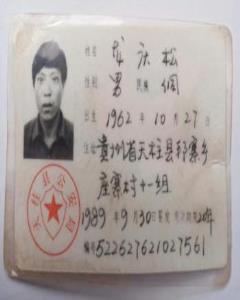 姓名 庆松
性别 男 民族 侗
出生 1962年10月27日
住址 贵州省天柱县邦寨乡
寨村十一组
1989年9月30日签发 有效期20年
编号522627621027561
天柱县公安局